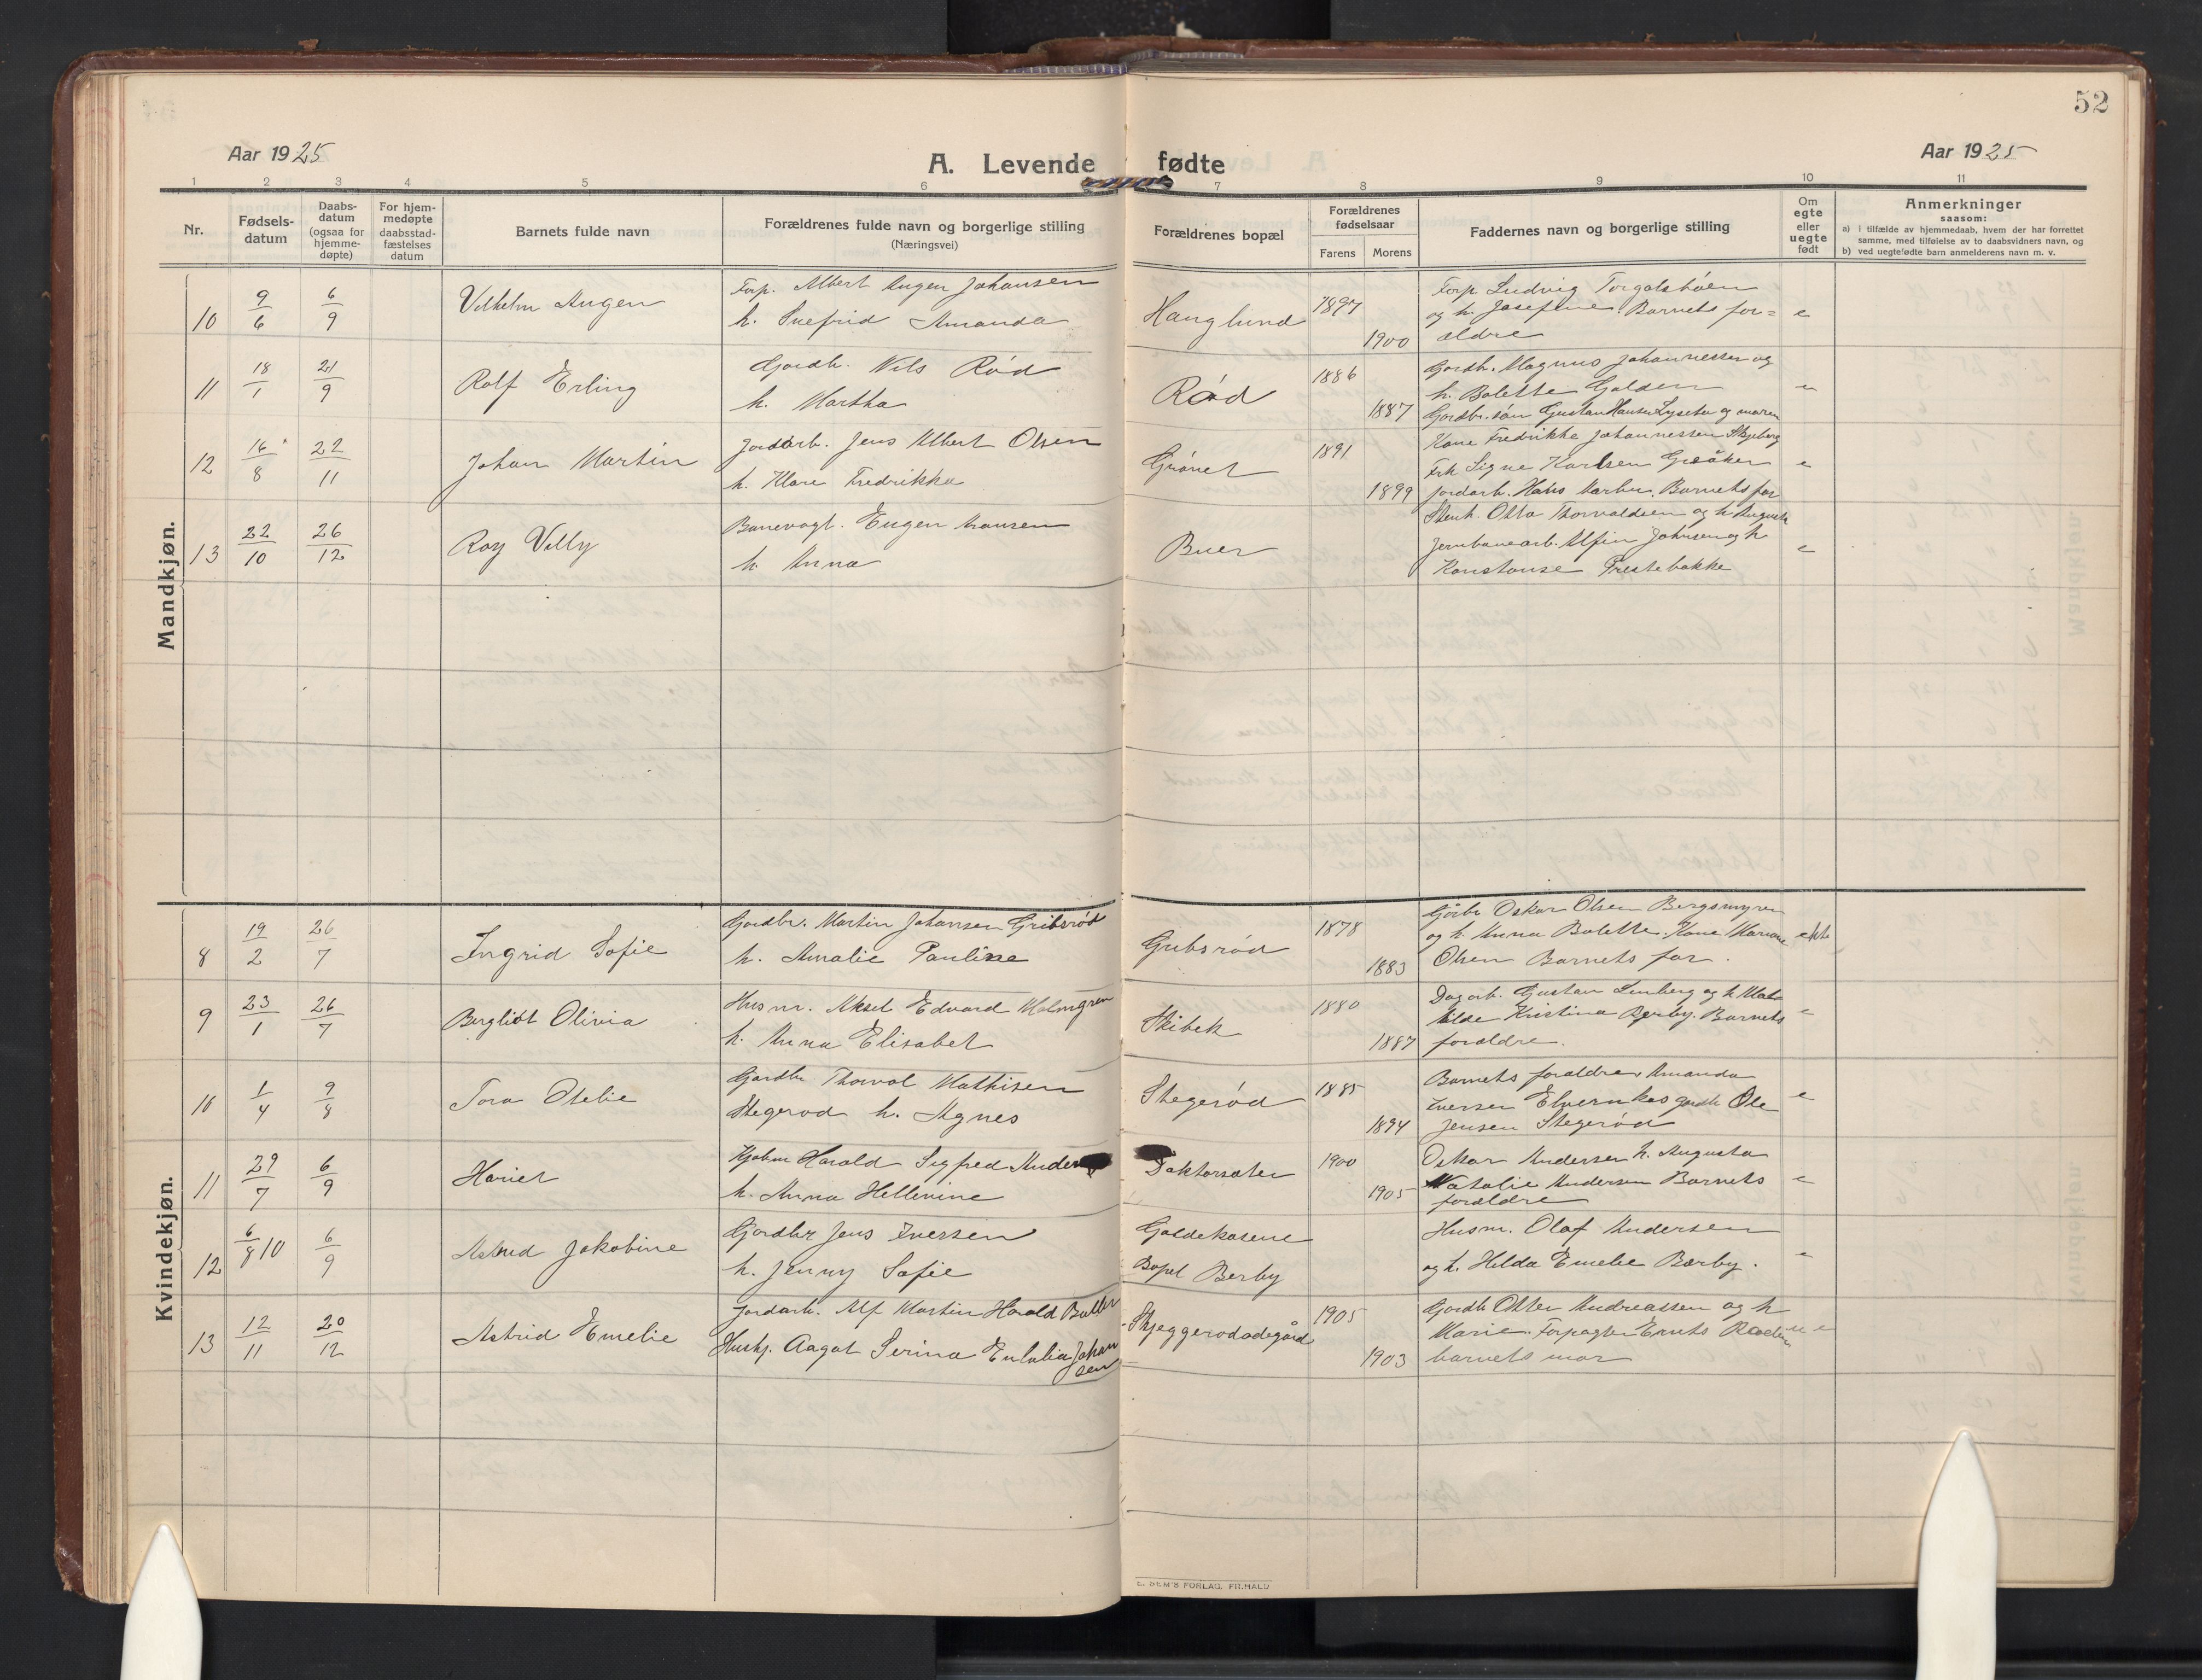 52
Aar 1925
A. Levende fødte
Aar 1925
1 2 3 4 5 6 7 8 9 10 11
Nr.
Fødsels-
datum
Daabs-
datum
(ogsaa for
hjemme-
døpte)
For hjem-
medøpte
daabsstad-
fæstelses
datum
Barnets fulde navn
Forældrenes fulde navn og borgerlige stilling
(Næringsvei)
Forældrenes bopæl
Forældrenes
fødselsaar
Farens Morens
Faddernes navn og borgerlige stilling
Om
egte
eller
uegte
født
Anmerkninger
saasom:
a) i tilfælde av hjemmedaab, hvem der har forrettet
samme, med tilføielse av to daabsvidners navn, og
b) ved uegtefødte barn anmelderens navn m. v.
Mandkjøn.
10 9/6 6/9 Vilhelm Augen
Forp. Albert Augen Johansen
h. Snefrid Amanda
Hauglund 1897
1900
Forp. Ludvig Torgalsbøen
og h. Josefine. Barnets for=
ældre
e
11 18/1 21/9 Rolf Erling
Gordb. Nils Rød
h. Martha
Rød 1886
1887
Gordb. Magnus Johannessen og
h. Bolette Golden
Gordbr. søn Gustav Hansen Lyseto og moren
e
12 16/8 22/11 Johan Martin
Jordarb. Jens Albert Olsen
h. Klara Fredrikka
Grønet 1891
1899
Kone Fredrikke Johannessen Skjeberg
Frk Signe Karlsen Greåker
jordarb. Hans Barnets far
e
13 22/10 26/12 Roy Villy
Banevogt. Eugen Hansen
h. Anna
Buer
Stenh. Otto Thorvaldsen og h. Augusta
Jernbanearb. Alfin Johnsen og h
Konstanse Prestebakke
e
Kvindekjøn.
8 19/2 26/7 Ingrid Sofie
Gordbr. Martin Johansen Gribsrød
h. Amalie Pauline
Gribsrød 1878
1883
Oskar Olsen Bergsmyren
og h. Anna Bolette. Kone Mariane
Olsen Barnets far.
ekte
9 23/1 26/7 Bergliot Olivia
Husm. Aksel Edvard Malmgren
h. Anna Elisabet
Skibek 1880
1887
Dagarb. Gustav Lunberg og h Mat
hilde Kristina Berby. Barnets
forældre.
e
10 1/4 9/8 Tora Otelie
Gordbr Thorval Mathisen
Stegerød h. Agnes
Stegerød 1885
1894
Barnets forældre, Amanda
Iversen Elvernkas gordb Ole
Jensen Stegerød
e
11 29/7 6/9 Hariet
Kjøbm Harald Sigfred
h. Anna Hellenine
Doktorsæter 1900
1905
Oskar Andersen h. Augusta
Natalie Andersen Barnets
forældre
e
12 6/8 10 6/9 Astrid Jakobine
Gordbr Jens Iversen
h. Jenny Sofie
Goldekasene
Bopel Berby
Husm. Olaf Andersen
og h. Hilda Emelie Berby.
e
13 12/11 20/12 Astrid Emelie
Jordarb. Alf Martin Harald
Hushj. Aagot Serina Eulalia Johan
sen
Skjeggerødødegård 1905
1903
Gordb Otter Andreassen og h
Marie. Forpagter Ernts
barnets mor
E. SEM'S FORLAG, FR.HALD